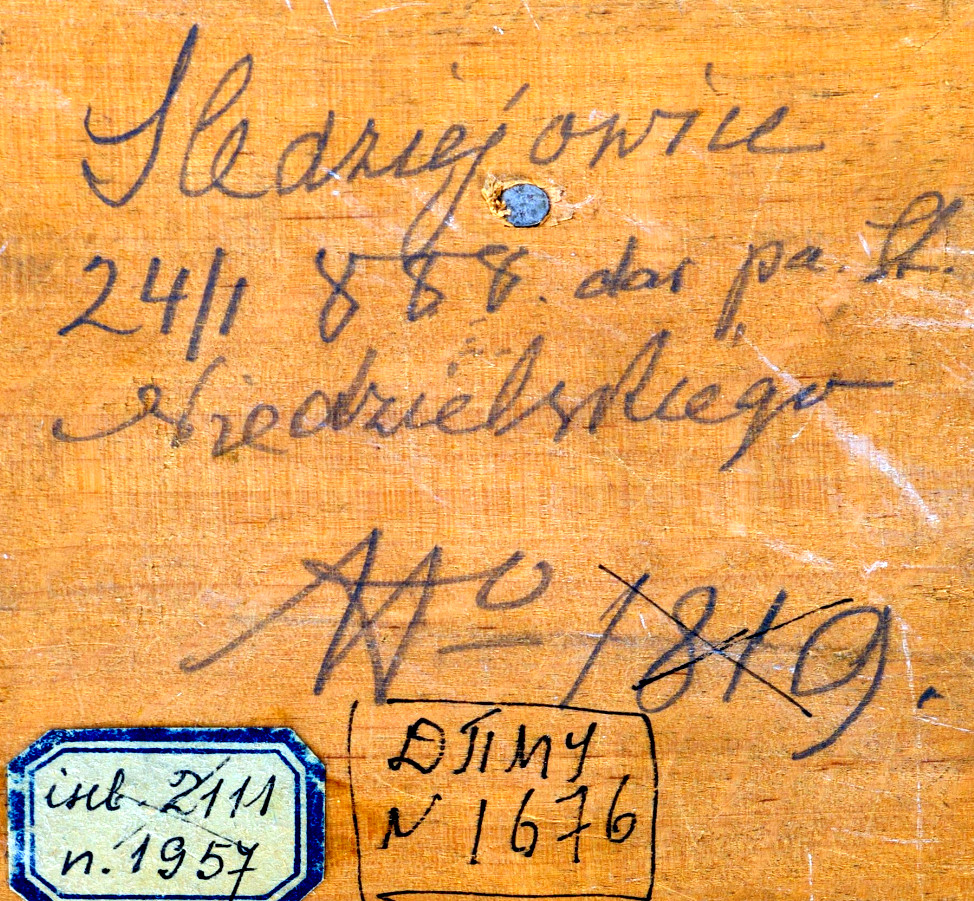 Sledziejowice
24/1 888. dar pa. St.
Niedzielskiego
No 1819.
інв. 2111
п. 1957
ДПМУ
N 1676